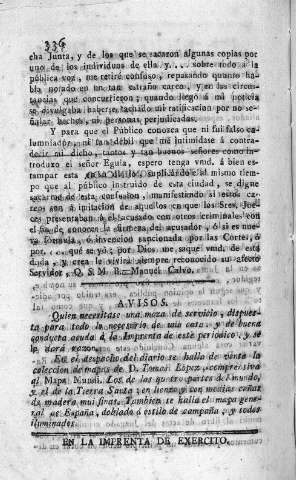 336
cha Junta, y de los que se sacaron algunas copias por
uno de los individuos de ella y.... sobre todo a la
pública voz, me retiré confuso, repasando quanto ha-
bía notado en un tan extraño careo, y en las circuns-
tancias que concurrieron; quando llegó á mi noticia
se divulgaba haberse tachado mi ratificacion por no se-
ñalar hechos, ni personas perjudicadas.
Y para que el Público conozca que ni fui falso ca-
lumniador, ni tan débil que me intimidase á contra-
decir mi dicho, tantos y tan buenos señores como in-
troduxo el señor Eguia, espero tenga vmd. á bien es-
tampar esta en su diario, suplicándole al mismo tiempo
que al público instruido de esta ciudad, se digne
sacarme de esta confusion, manifestando si estos ca-
reos son á imitacion de aquellos en que los Sres. Jue-
ces presentaban á el acusado con otros criminales con
el fin de conocer la firmeza del acusador, ó si es nue-
va fórmula, ó invencion sancionada por las Cortes, ó
por... qué se yó; por Dios me saque vmd. de esta
duda, y será le vivirá siempre reconocido su afecto
Servidor, Q. S. M. B.=Manuel Calvo.
AVISOS.
Quien necesitase una moza de servicio, dispues-
ta para todo lo necesario de una casa, y de buena
conducta acuda á la Imprenta de este periódico, y se
le dará razon.
En el despacho del diario se halla de venta la
coleccion de mapas de D. Tomas Lopez, comprensiva
al Mapa Mundi. Los de las quatro partes del mundo,
y el de la Tierra Santa; en lienzo y con medias cañas
de madera muy finas. Tambien se halla el mapa gener-
al de España, doblado á estilo de campaña, y todos
iluminados.
EN LA IMPRENTA DE EXERCITO.